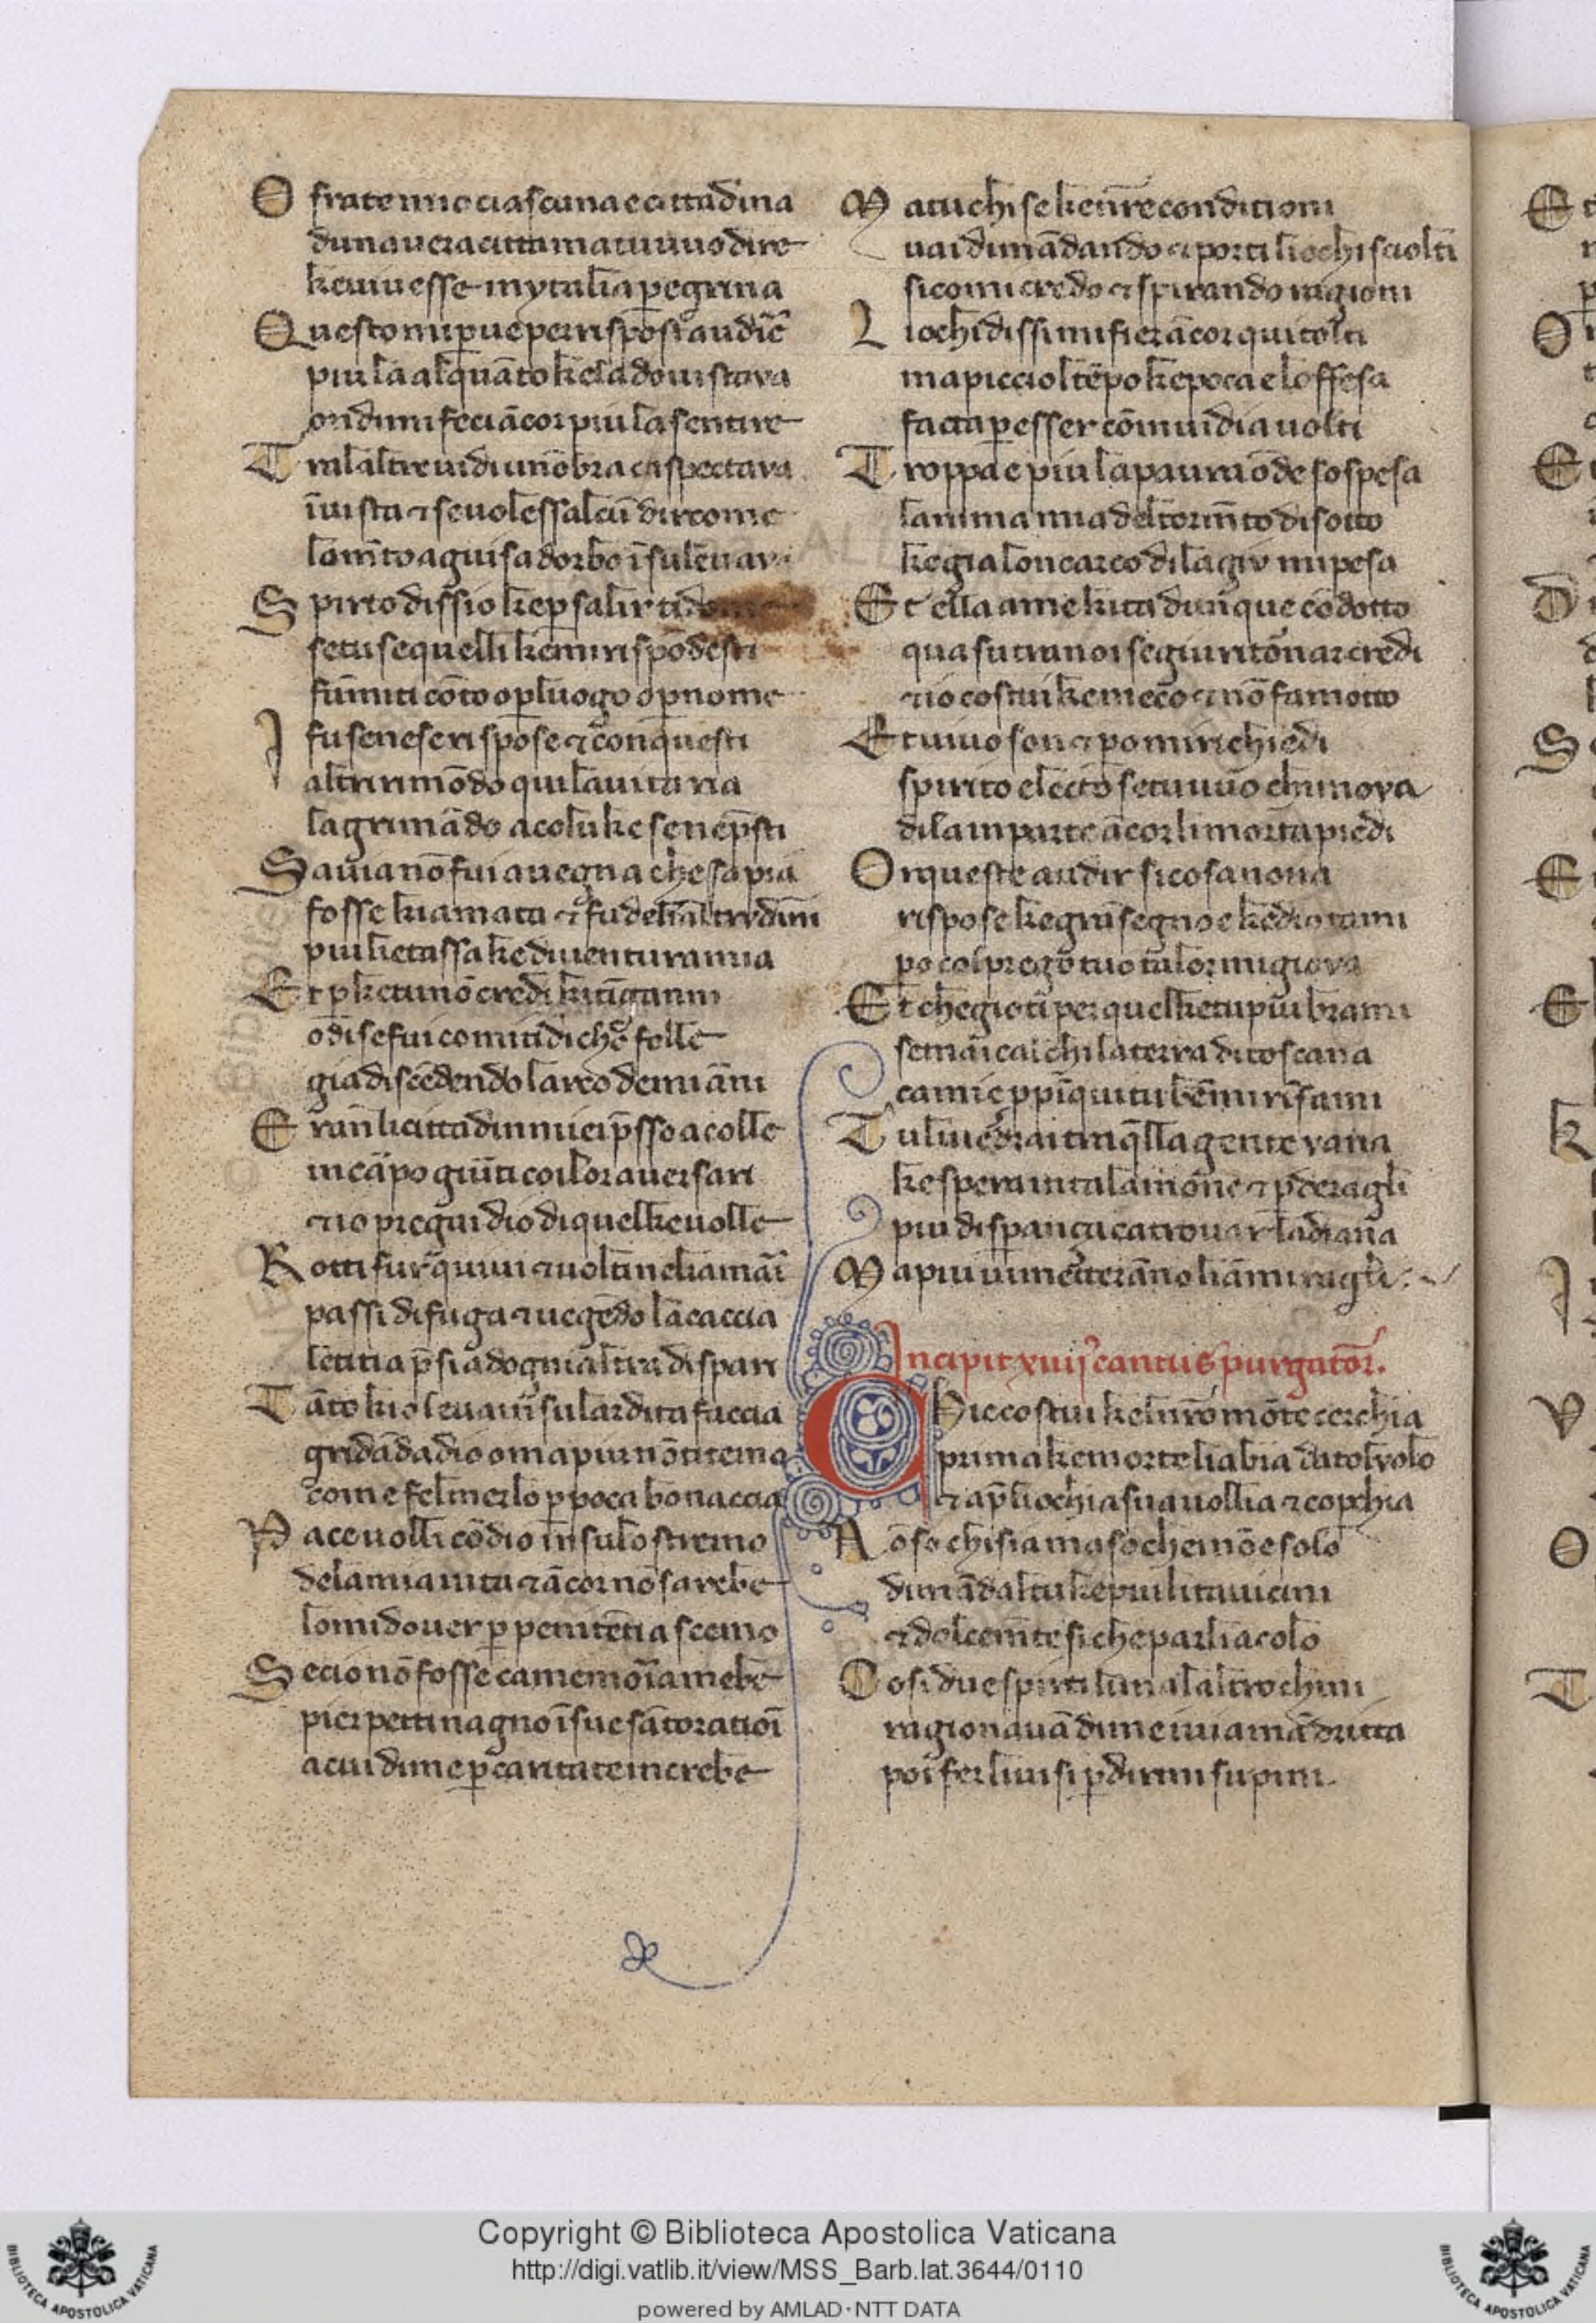 O frate mio ciascuna e cittadina
duna vera citta ma tu vuo dire
ke vivesse in ytalia pegrina
Questo mi pve per risposta audir̄
piu la alquāto ke la dovi stava
ondi mi feci ācor piu la sentire
Tra laltre vidi unōbra caspectava
ī vista ⁊ se volessalcū dir come
lo mēto a guisa dorbo ī su levava
Spirto dissio ke p salir ti
se tu se quelli ke mi rispōdesti
fāmiti cōto o p luogo o p nome
I fu senese rispose ⁊ con questi
altri rimōdo qui la vita ria
lagrimādo a colui ke se ne p̄sti
Savia nō fui avegna che sapia
fosse kiamata ⁊ fu deli altrui dāni
piu lieta ssa ke di ventura mia
Et p ke tu nō credi kitīganni
odi se fui comi ti dicho folle
gia discēdendo larco de mi āni
Erān li cittadin miei p̄sso a colle
in cāpo giūti coi lor aversari
⁊ io pregai dio di quel ke volle
Rotti fur quivi ⁊ volti neli amāi
passi di fuga ⁊ vegēdo la caccia
letitia p̄si ad ogni altra dispari
Tāto kio leva un su lardita faccia
gridādo a dio oma piu nō ti temo
come fel merlo p poca bonaccia
Pace volli cō dio in su lo stremo
dela mia vita ⁊ ācor nō sarebe
lo mi dover p penitētia scemo
Se cio nō fosse ca memoria mebe
pier pettinagno ī sue sāte oratioī
a cui di me p caritate increbe
Ma tu chi se ke nr̄e conditioni
vai dimādando ⁊ porti li ochi sciolti
si comi credo ⁊ spirando ragioni
Li ochi dissi mi fier ācor qui tolti
ma picciol tēpo ke poca e loffesa
facta p esser cō invidia volti
Troppa e piu la paura ōde sospesa
lanima mia del tormēto di sotto
ke gia lo ncarco di la giu mi pesa
Et ella a me ki ta dunque cōdotto
qua su tra noi se giu ritōnar credi
⁊ io costui ke meco ⁊ nō fa motto
Et vivo son ⁊ po mi richiedi
spirito electo se tu vuo chi mova
di la in parte ācor li mortai piedi
Or queste a udir si cosa nova
rispose ke grā segno e ke dio tami
po col prego tuo talor mi giova
Et chegioti per quel ke tu piu brami
se mai calchi la terra di toscana
ca mie ppīqui tu bē mi rīfami
Tu li vedrai tra q̄lla gente vana
ke spera in talamone ⁊ pderagli
piu disperança ca trovar la diana
Ma piu vi metterāno li āmiragli
Incipit xiiij cantus purgator̄.
Chi e costui kel nr̄o mōte cerchia
prima ke morte li abia dato l volo
⁊ ap̄ li ochi a sua vollia ⁊ copchia
Nō so chi sia ma so che nō e solo
dimādal tu ke piu li tavicini
⁊ dolcemēte si che parli a colo
Cosi due spirti luno a laltro chini
ragionavā di me ivi a mā dritta
poi fer li visi p dirmi supini
Copyright © Biblioteca Apostolica Vaticana
http://digi.vatlib.it/view/MSS_Barb.lat.3644/0110
powered by AMLAD·NTT DATA
BIBLIOTECA APOSTOLICA VATICANA
BIBLIOTECA APOSTOLICA VATICANA